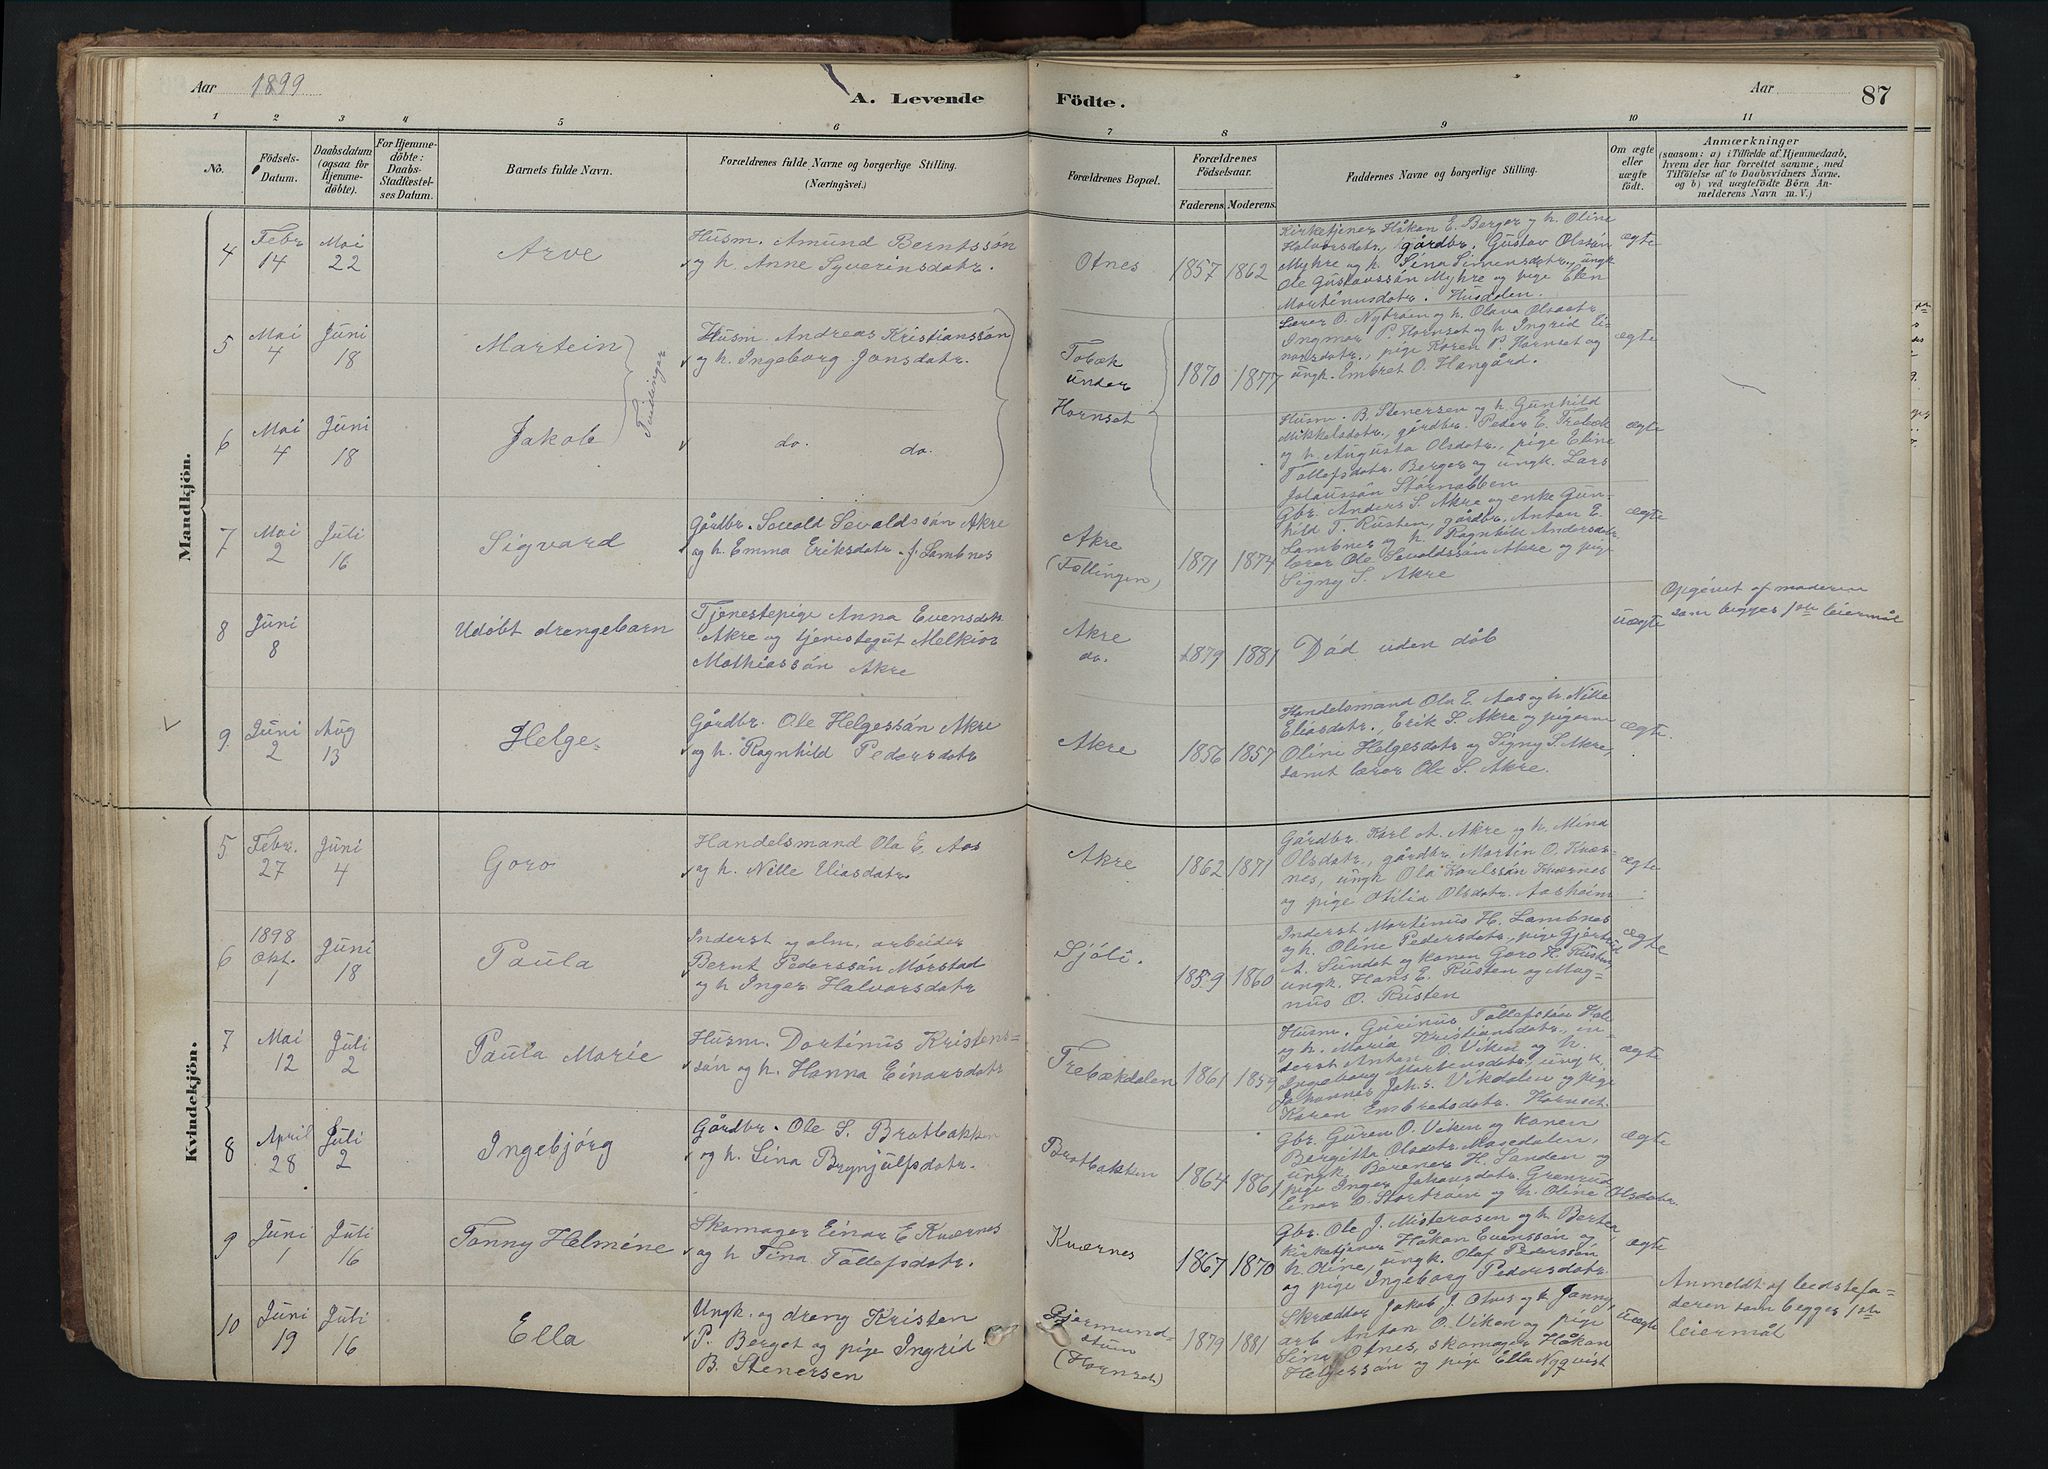 Aar 1899
A. Levende Födte.
Aar
87
1 2 3 4 5 6 7 8 9 10 11
No.
Födsels-Datum.
Daabsdatum (ogsaa for Hjemmedöbte).
For Hjemmedöbte: Daabs-Stadfæstelses Datum.
Barnets fulde Navn.
Forældrenes fulde Navne og borgerlige Stilling. (Næringsvei.)
Forældrenes Bopæl.
Forældrenes Födselsaar.
Faderens. Moderens.
Faddernes Navne og borgerlige Stilling.
Om ægte eller uægte födt.
Anmærkninger
(saasom: a) i Tilfælde af Hjemmedaab, hvem der har forrettet samme, med Tilföielse af to Daabsvidners Navne, og b) ved uægtefödte Börn Anmelderens Navn m. V.)
Mandkjön.
4 Febr 14 Mai 22
Arve
Husm. Amund Berntssön
og h. Anne Syverinsdatr.
Otnes
1857 1862
Kirketjener Håkon E. Berger og h. Oline
Halvorsdatr, gårdbr. Gustav Olssön
Myhre og h. Sina Simensdatr., ungk.
Ole Gustavssön Myhre og pige Elen
Martinusdatr. Husdalen.
ægte
5 Mai 4 Juni 18
Martein
Tvillinger
Husm. Andreas Kristianssön
og h. Ingeborg Jonsdatr.
Tobæk
under
Hornset
1870 1877
Lærer O. Nybroen og h. Olava Olsdatr
Ingmar P. Hornset og h. Ingrid Ei-
narsdatr., pige Karen P. Hornset og
ungk. Embret O. Hangård.
ægte
6 Mai 4 Juni 18
Jakob
do. do.
Husm. B. Stenersen og h. Gunhild
Mikkelsdatr., gårdbr. Peder E. Trebæk
og h. Augusta Olsdatr., pige Eline
Tollefsdatr. Berger og ungk. Lars
Jolaussön Stornabben
ægte
7 Mai 2 Juli 16
Sigvard
Gårdbr. Sevald Sevaldssön Akre
og h. Emma Eriksdatr. f. Lombnes
Akre
(Follingen)
1871 1874
Gbr. Anders S. Akre og enke Gun-
hild T. Rusten, gårdbr. Anton E.
Lombnes og h. Ragnhild Andersdatr.
lærer Ole Sevaldssön Akre og pige
Signy S. Akre
ægte
8 Juni 8
Udöbt drengebarn
Tjenestepige Anna Evensdtr
Akre og tjenestegut Melkior
Mathiassön Akre
Akre
do.
1879 1881
Död uden dåb
uægte
Opgivet af moderen
som begges 1ste leiermål
9 Juni 2 Aug 13
Helge
Gårdbr. Ole Helgessön Akre
og h. Ragnhild Pedersdatr
Akre
1856 1857
Handelsmand Ola E. Aas og h. Nille
Eliasdatr., Erik S. Akre og pigerne
Oline Helgesdatr og Signy S. Akre,
samt lærer Ole S. Akre.
ægte.
Kvindekjön.
5 Febr. 27 Juni 4
Goro
Handelsmand Ola E. Aas
og h. Nille Eliasdatr
Akre
1862 1871
Gårdbr. Karl A. Akre og h. Mina
Olsdatr., gårdbr. Martin O. Kvær-
nes, ungk Ola Karlssön Kværnes
og pige Otilia Olsdatr. Aasheim
ægte
6 1898 Okt. 1 Juni 18
Paula
Inderst og alm. arbeider
Bernt Pederssön Mörstad
og h Inger Halvorsdatr
Sjöli.
1859 1860
Inderst Martinus H. Lombnes
og h. Oline Pedersdatr., pige Gjertrud
A. Sundet og konen Goro H. Rusten,
ungk. Hans E. Rusten og Mag-
nus O. Rusten
ægte
7 Mai 12 Juli 2
Paula Marie
Husm. Dortinus Kristens-
sön og h. Hanna Einarsdatr
Trebækdalen
1861
Husm. Gurinus Tollefssön
og h. Maria Kristiansdatr., in-
derst Anton O. Viken og h.
Ingeborg Mortensdatr, ungk.
Johannes Joh.s. Vikdalen og pige
Karen Embretsdatr. Hornset.
ægte
8 April 28 Juli 2
Ingebjörg
Gårdbr. Ole S. Bratbakken
og h. Sina Brynjulfsdatr.
Bratbakken
1864 1861
Gbr. Guren O. Viken og konen
Bergitta Olsdatr. Mosedalen,
ungk. Berener H. Landen og
pige Inger Johansdatr. Grønrud
Einar O. Storbroen og h. Oline Olsdatr.
ægte
9 Juni 1 Juli 16
Fanny Helmine
Skomager Einar E Kværnes
og h Tina Tollefsdatr.
Kværnes
1867 1870
Gbr. Ole J. Misterosen og h. Berte,
kirketjener Håkon Evenssön og
h. Oline, ungk. Olaf Pederssön
og pige Ingeborg Pedersdatr.
ægte
10 Juni 19 Juli 16
Ella
Ungk. og dreng Kristen
P. Berget og pige Ingrid
B. Stenersen
Gjermund-
stuen
(Hornset)
1879 1881
Skrædder Jakob J. Otnes og h. Janny,
arb Anton O. Viken og pige
Sina Otnes, skomager Håkon
Helgessön og pige Ella Nyqvist
uægte
Anmeldt af barnefa-
deren som begges 1ste
leiermål